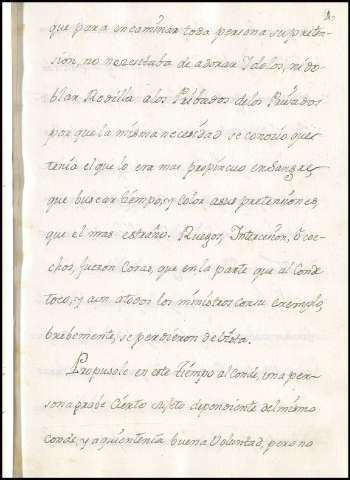 que para encaminar toda persona su preten-
sion, no necesitaba de adorar Idolos, ni do-
blar Rodilla alos Pribados delos Pribados
por que la misma necesidad se conozio que
tenia el que lo era mas propincuo en Sangre,
que buscar tiempo, y color a sus pretensiones,
que el mas estraño. Ruegos, Intercesion, ô co-
chos, fueron Cosas, que en la parte que al Conde
toco, y aun atodos los ministros con su exemplo,
brebemente, se perdieron de Vista.
Propusole en este tiempo al Conde, una per-
sona grabe Cierto sujeto dependiente del mismo
Conde, y a quien tenia buena Voluntad, pero no